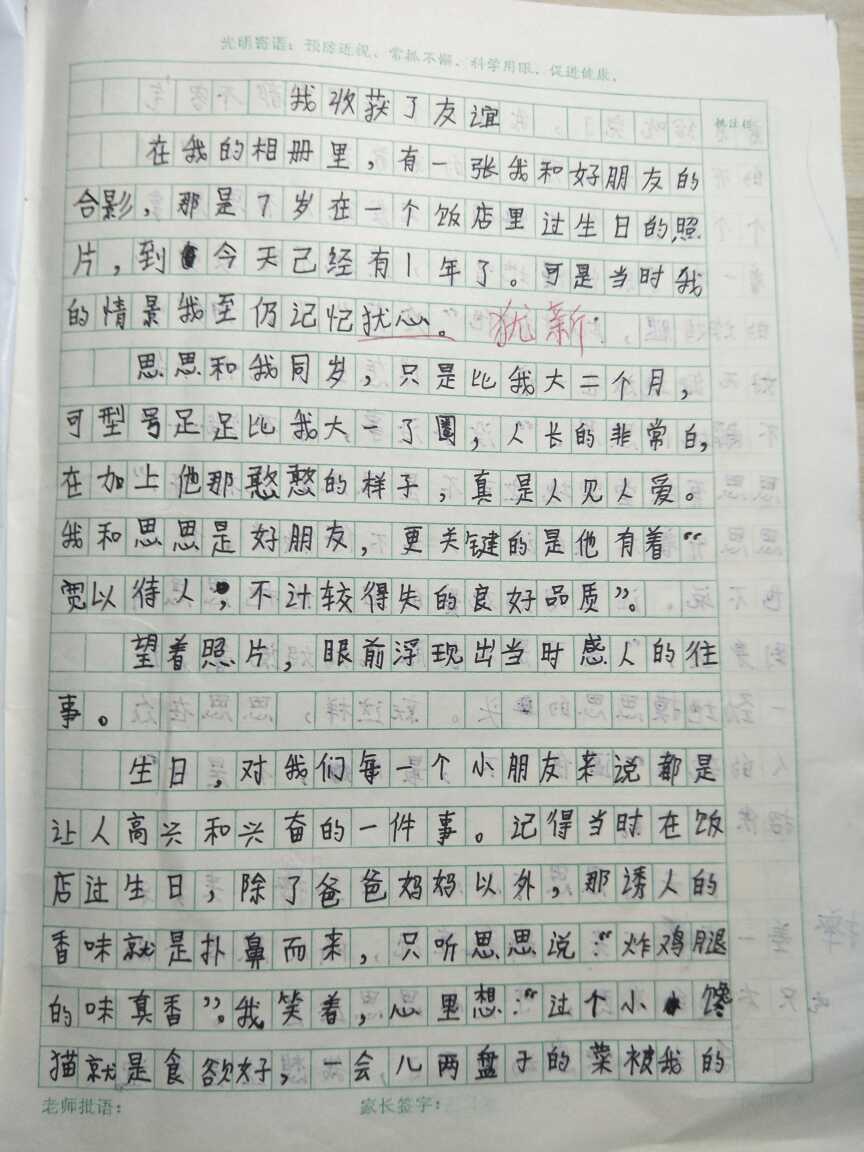 光明寄语：预防近视、常抓不懈、科学用眼、促进健康。
我收获了友谊
在我的相册里，有一张我和好朋友的
合影，那是7岁在一个饭店里过生日的照
片，到今天已经有1年了。可是当时我
的情景我至仍记忆犹心。犹新
思思和我同岁，只是比我大二个月，
可型号足足比我大一了圈，人长的非常白，
在加上他那憨憨的样子，真是人见人爱。
我和思思是好朋友，更关键的是他有着“
宽以待人，不计较得失的良好品质”。
望着照片，眼前浮现出当时感人的往
事。
生日，对我们每一个小朋友来说都是
让人高兴和兴奋的一件事。记得当时在饭
店过生日，除了爸爸妈妈以外，那诱人的
香味就是扑鼻而来，只听思思说：“炸鸡腿
的味真香”。我笑着，心里想：“过个小馋
猫就是食欲好，一会儿两盘子的菜被我的
老师批语：
家长签字：